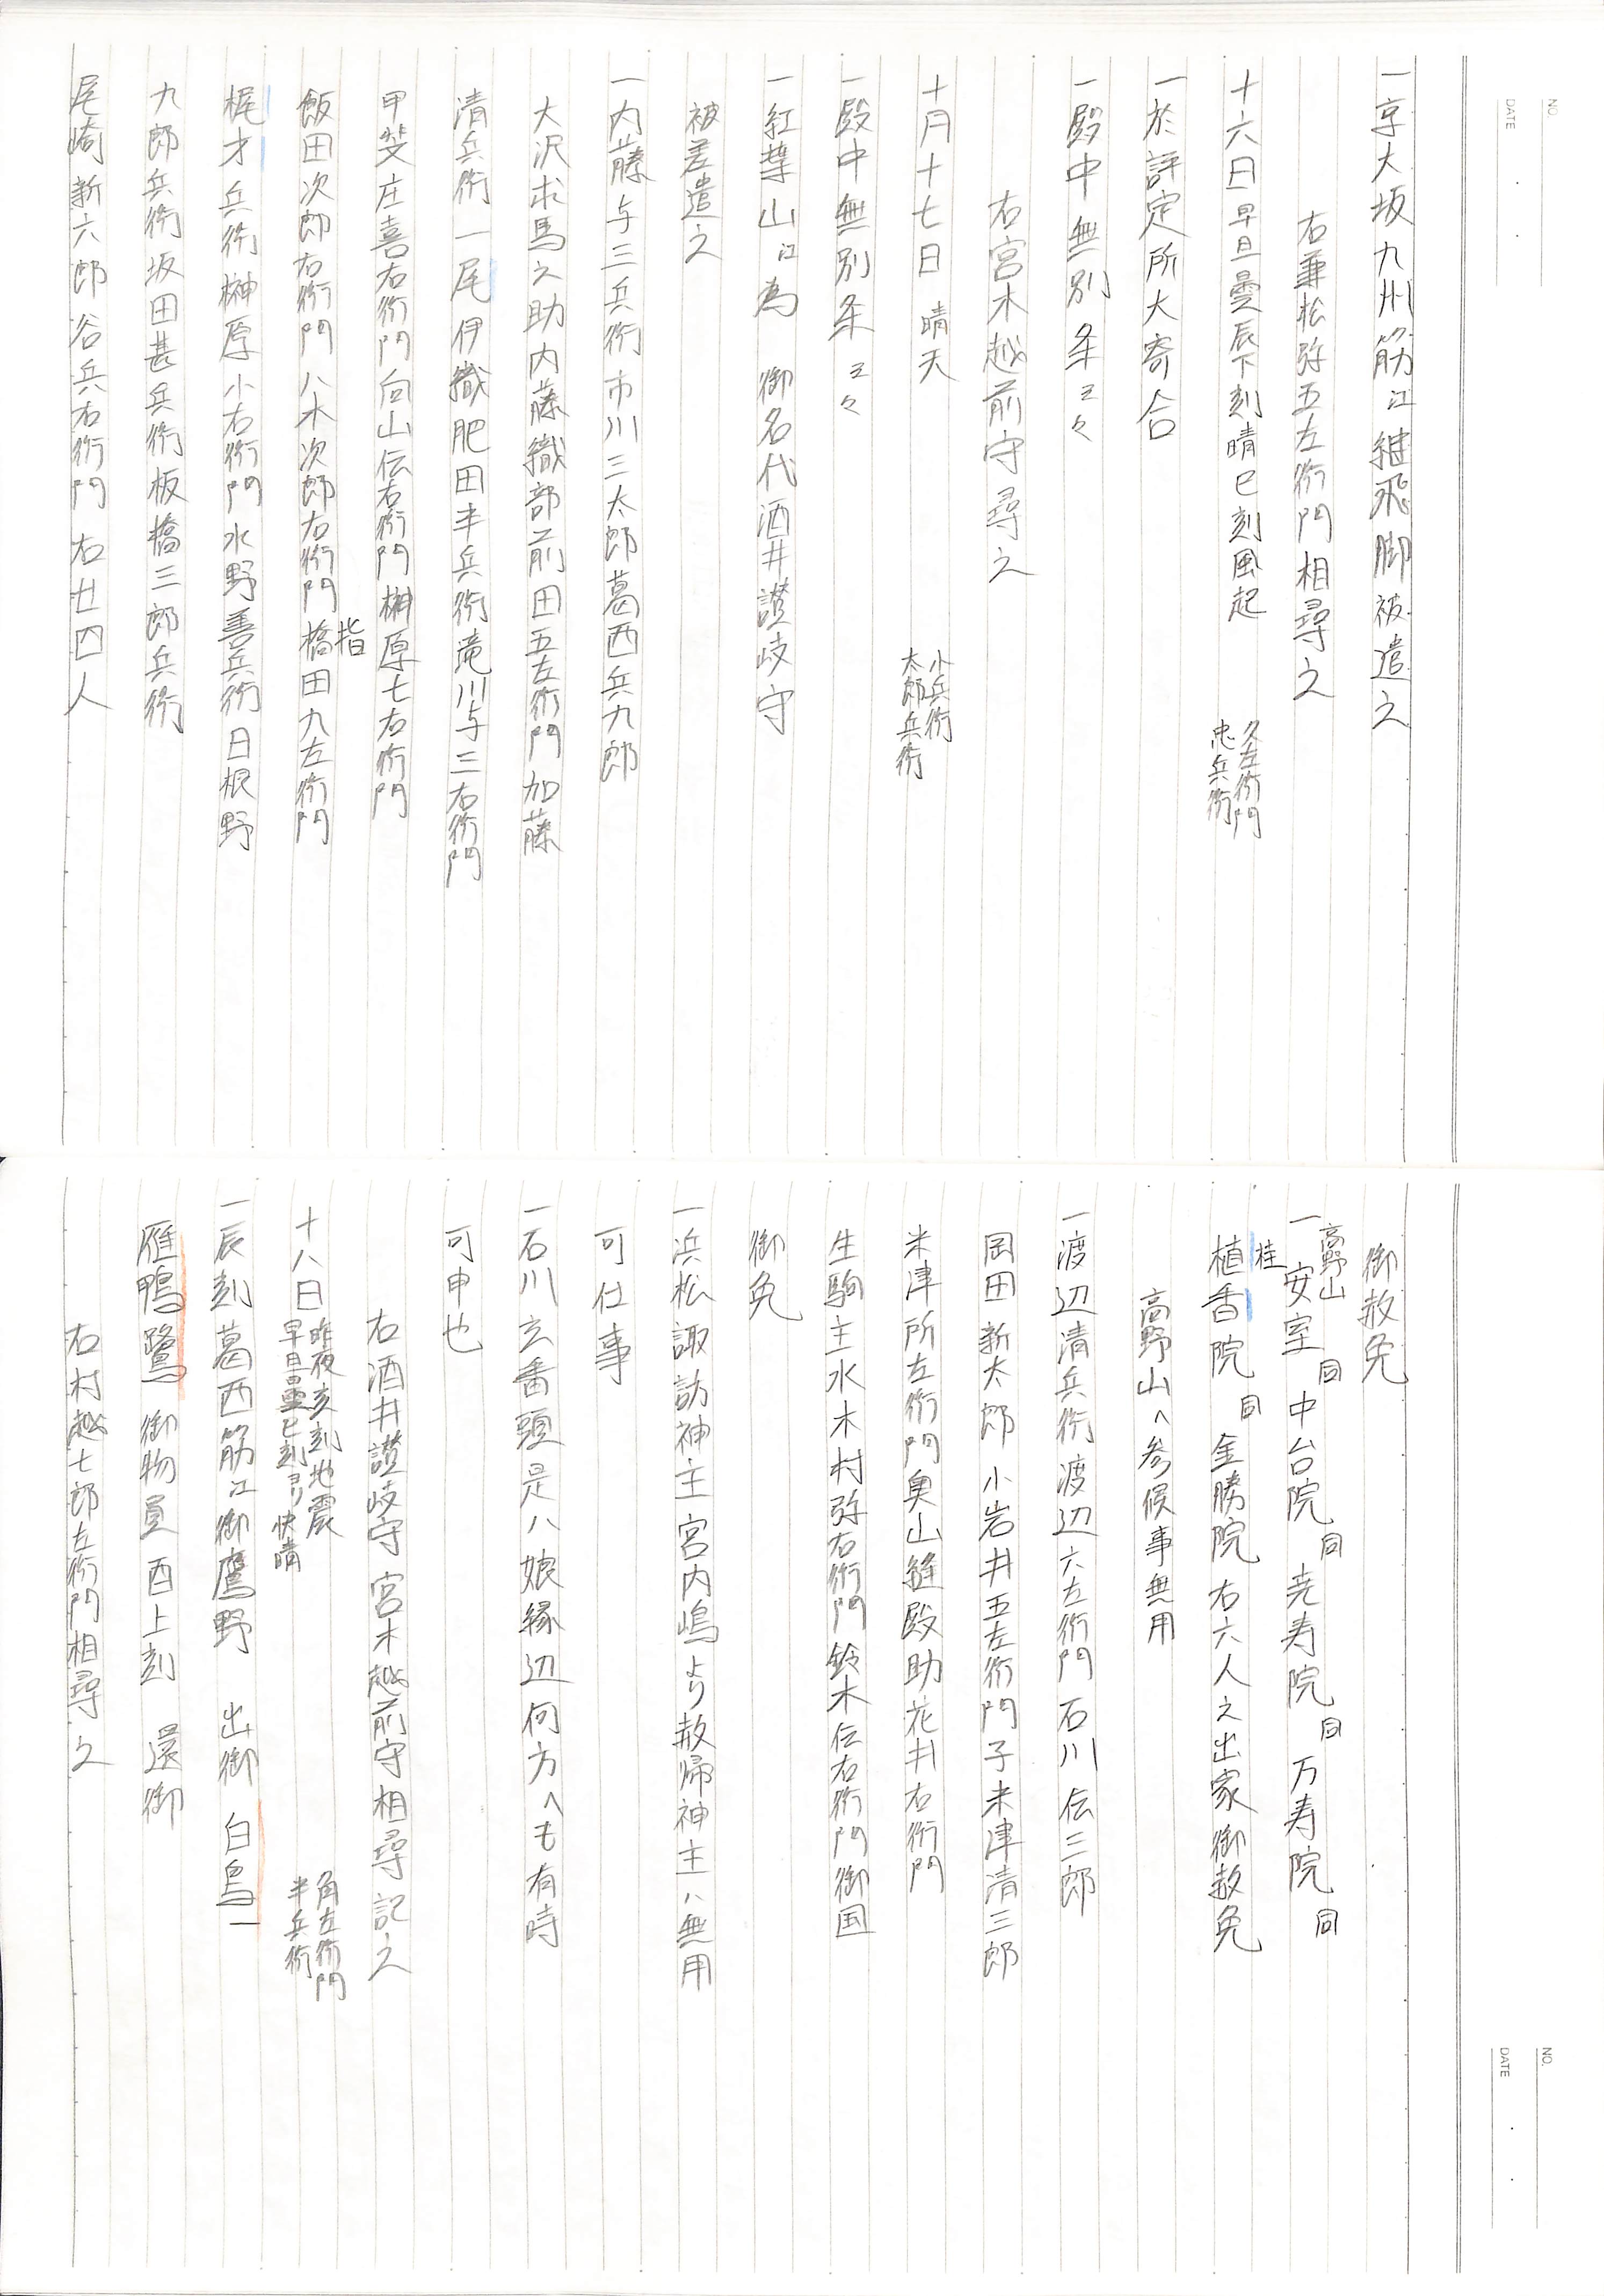 一京大坂九州筋江継飛脚被遣之
右兼松弥五左衛門相尋之
十六日早旦曇辰下刻晴巳刻風起 久左衛門 忠兵衛
一於評定所大寄合
一殿中無別条云々
右宮木越前守尋之
十月十七日 晴天 小兵衛 太郎兵衛
一殿中無別条云々
一紅葉山江為 御名代酒井讃岐守
被差遣之
一内藤与三兵衛市川三太郎葛西兵九郎
大沢求馬之助内藤織部前田五左衛門加藤
清兵衛一尾伊織肥田半兵衛滝川与三右衛門
甲斐庄喜右衛門向山伝右衛門榊原七右衛門
飯田次郎右衛門八木次郎右衛門橋田九左衛門
楷
梶才兵衛榊原小右衛門水野善兵衛日根野
九郎兵衛坂田甚兵衛板橋三郎兵衛
尾崎新六郎谷兵右衛門右廿四人
御赦免
高野山
一安室 同中台院 同尭寿院 同万寿院 同
桂
植香院 同金勝院右六人之出家御赦免
高野山へ参候事無用
一渡辺清兵衛渡辺六左衛門石川伝三郎
岡田新太郎小岩井五左衛門子米津清三郎
米津所左衛門奥山縫殿助花井右衛門
生駒主水木村弥右衛門鈴木伝右衛門御国
御免
一浜松諏訪神主宮内嶋より赦帰神主ハ無用
可仕事
一石川玄番頭是ハ娘縁辺何方へも有時
可申也
右酒井讃岐守宮木越前守相尋記之
十八日 昨夜亥刻地震 早旦曇巳刻ヨリ快晴 角左衛門 半兵衛
一辰刻葛西筋江御鷹野 出御 白鳥一
雁鴨鷺御物員酉上刻 還御
右村越七郎左衛門相尋之
NO.
DATE
NO.
DATE